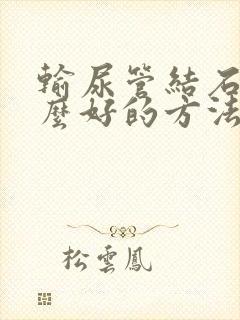 輸尿管結石
麼好的方法
松雲鳳